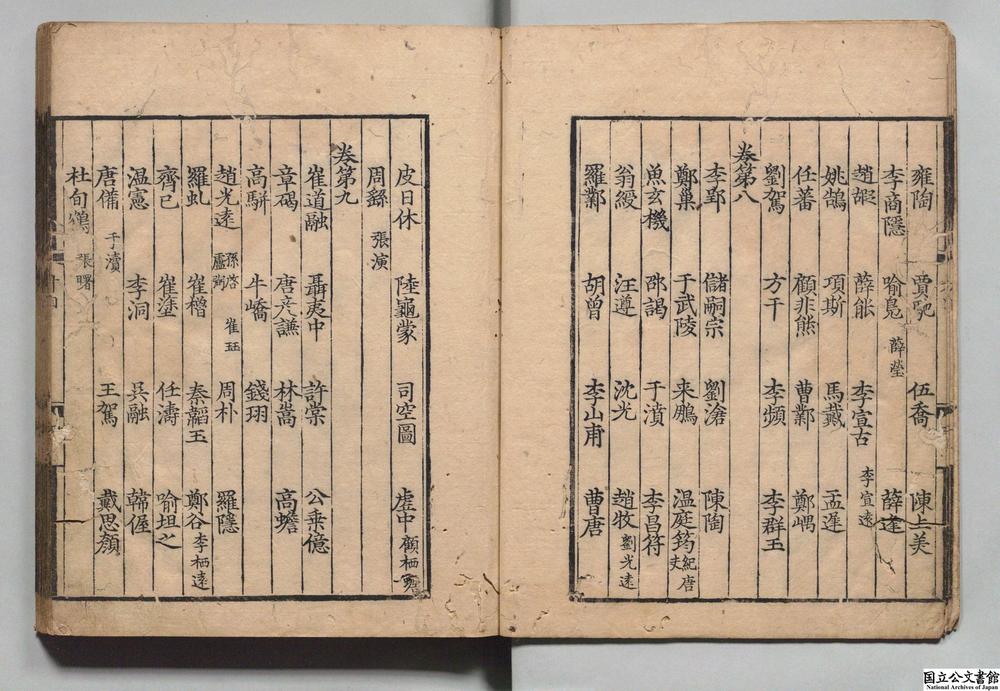 雍陶 賈馳 伍喬 陳上美
李商隱 喻鳧 薛瑩 薛逢
趙嘏 薛能 李宣古 李宣遠
姚鵠 項斯 馬戴 孟遲
任蕃 顧非熊 曹鄴 鄭嵎
劉駕 方干 李頻 李群玉
卷第八
李郢 儲嗣宗 劉滄 陳陶
鄭巢 于武陵 来鵬 温庭筠 紀唐夫
魚玄機 邵謁 于濆 李昌符
翁綬 汪遵 沈光 趙牧 劉光遠
羅鄴 胡曾 李山甫 曹唐
皮日休 陸龜蒙 司空圖 虚中 顧栖
周繇 張演
卷第九
崔道融 聶夷中 許棠 公乗億
章碣 唐彦謙 林嵩 高蟾
高駢 牛嶠 錢珝
趙光遠 孫啓 盧弼 崔珏 周朴 羅隱
羅虬 崔櫓 秦韜玉 鄭谷 李栖遠
齊已 崔塗 任濤 喻坦之
温憲 李洞 吳融 韓偓
唐備 于濆 王駕 戴思顔
杜旬鶴 張曙
国立公文書館
National Archives of Japan